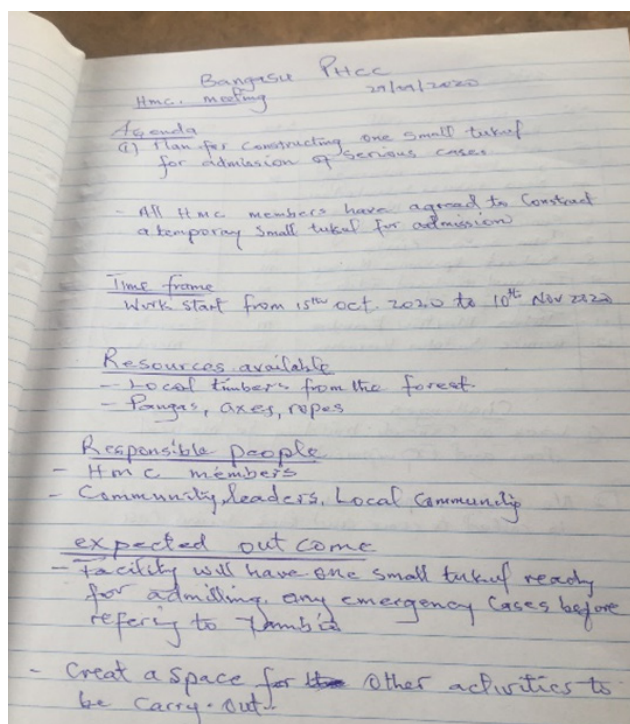 Bangasu PHCC
Hmc. meeting 29/09/2020
Agenda
(1) Plan for constructing one small tukul
for admission of serious cases.
- All Hmc members have agread to Construct
a temporay small tukul for admission
Time frame
Work start from 15th oct. 2020 to 10th Nov 2020
Resources available
- Local timbers from the forest
- Pangas, axes, ropes
Responsible people
- Hmc members
- Community leaders, Local Community
expected out come
- Facility will have one small tukul ready
for admilling any emergency Cases before
refering to Yambio
- Creat a space for other activities to
be carry. out.